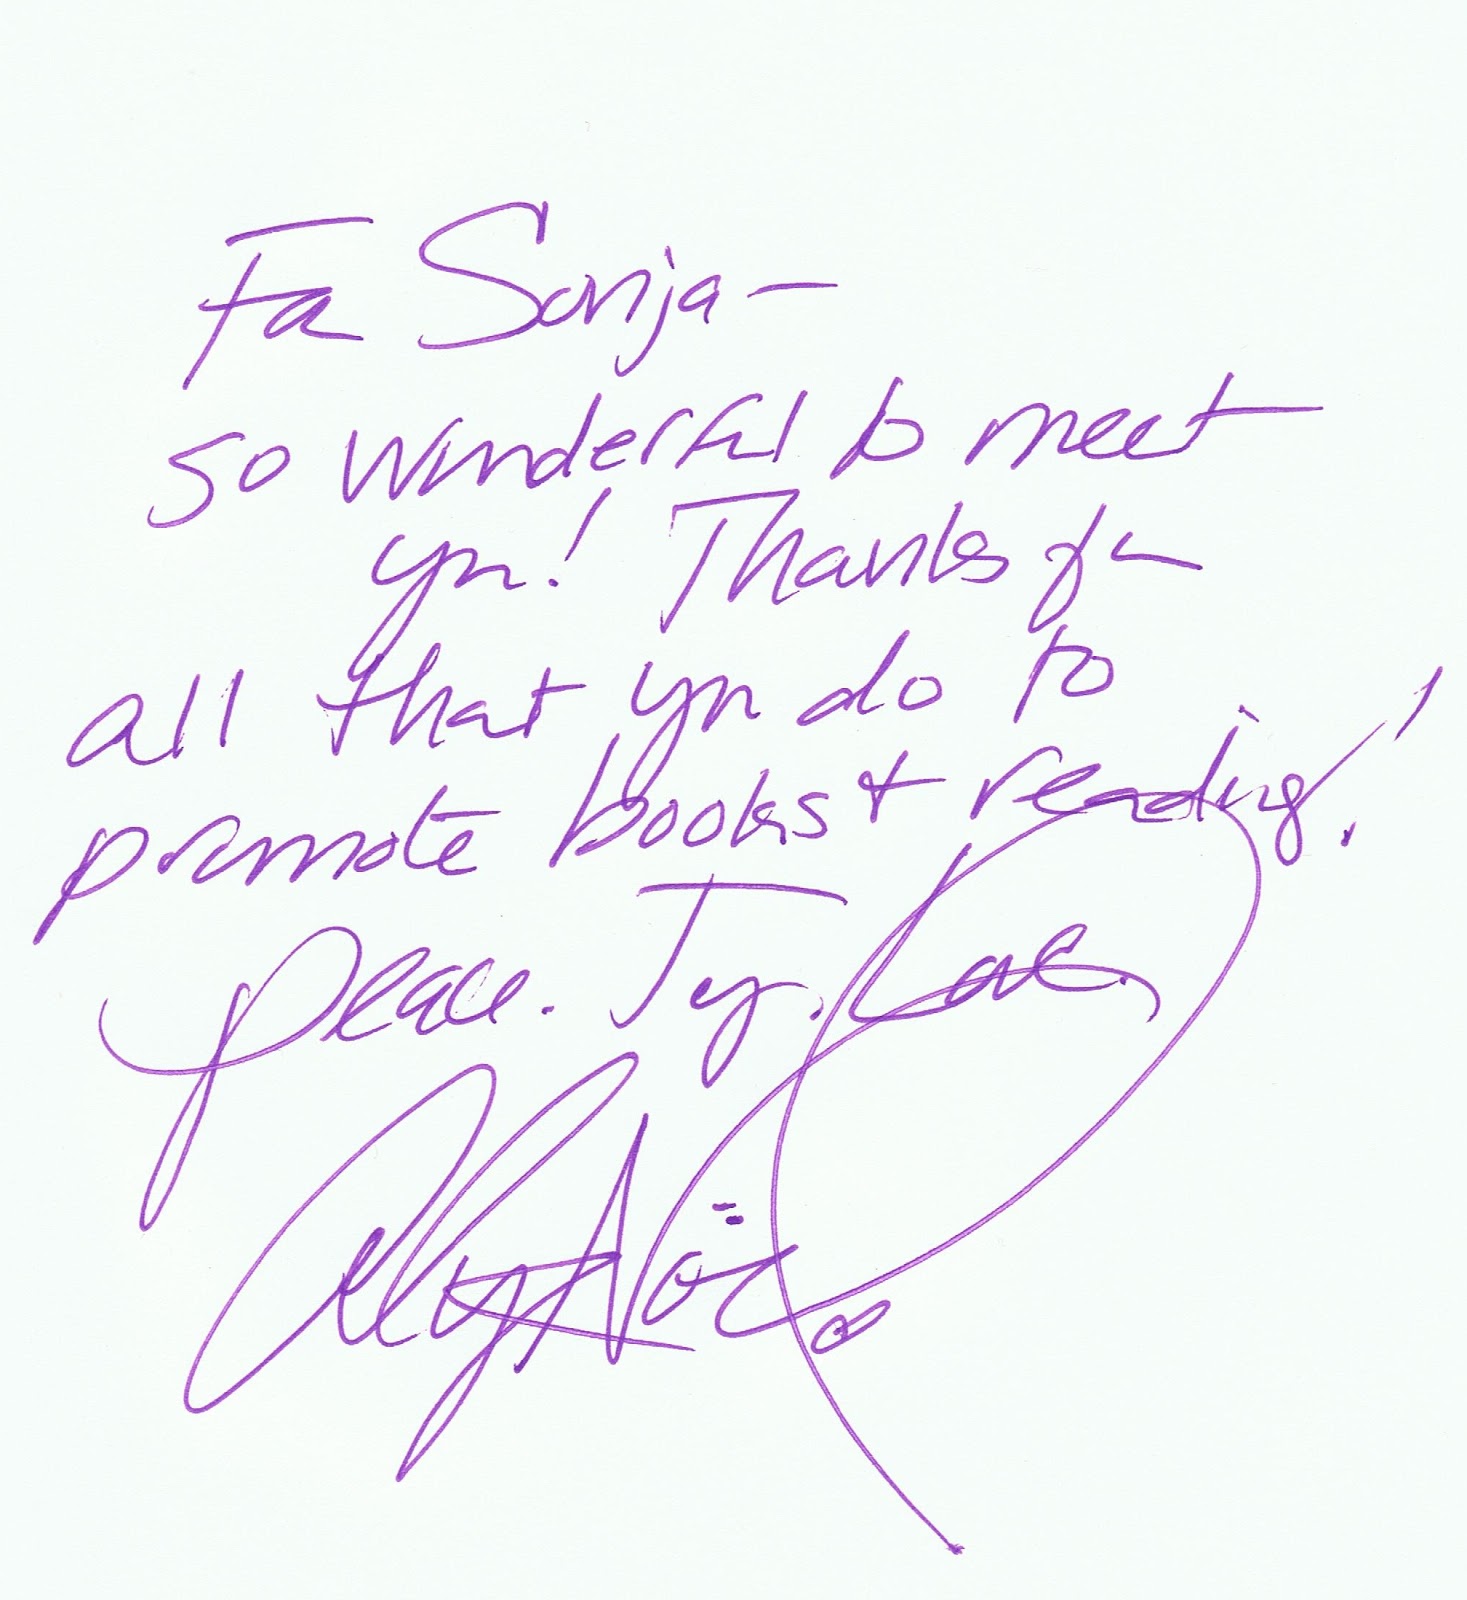 For Sonja—
so wonderful to meet
you! Thanks for
all that you do to
promote books + reading!
Peace. Joy. Love.
Alyson Noël